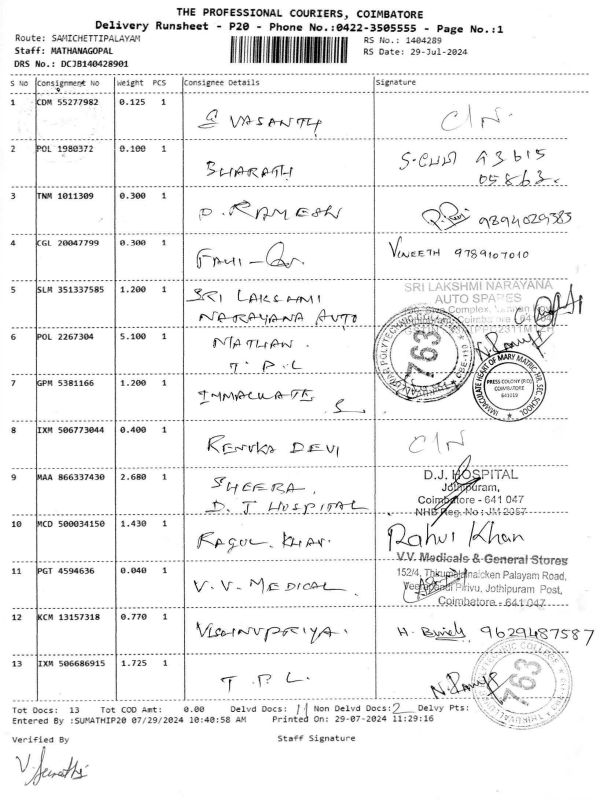 THE PROFESSIONAL COURIERS, COIMBATORE
Delivery Runsheet - P20 - Phone No.:0422-3505555 - Page No.:1
Route: SAMICHETTIPALAYAM
RS No.: 1404289
Staff: MATHANAGOPAL
RS Date: 29-Jul-2024
DRS No.: DCJB140428901
S No Consignment No Weight PCS Consignee Details Signature
1 CDM 55277982 0.125 1 S VASANTH C/N.
2 POL 1980372 0.100 1 BHARATH 93615 05863.
3 TNM 1011309 0.300 1 P. RAMESH 9894029383
4 CGL 20047799 0.300 1 VINEETH 9789107010
5 SLM 351337585 1.200 1 SRI LAKSHMI NARAYANA AUTO
SRI LAKSHMI NARAYANA
AUTO SPARES
6 POL 2267304 5.100 1 NATHAN. T. P. L
763
7 GPM 5381166 1.200 1
IMMACULATE HEART OF MARY MATRIC. HR. SEC. SCHOOL
PRESS COLONY (P.O)
COIMBATORE
641019
8 IXM 506773044 0.400 1 RENUKA DEVI C/N
9 MAA 866337430 2.680 1 SHEERA, D. J HOSPITAL
D.J. HOSPITAL
Jothipuram,
Coimbatore - 641 047
10 MCD 500034150 1.430 1 RAGUL. KHAN. Rahul Khan
11 PGT 4594636 0.040 1 V. V. MEDICAL
V.V. Medicals & General Stores
152/4, Palayam Road,
Pirivu, Jothipuram Post,
Coimbatore - 641 047
12 KCM 13157318 0.770 1 VISHNUPRIYA. 9629487587
13 IXM 506686915 1.725 1 T. P. L.
763
Tot Docs: 13 Tot COD Amt: 0.00 Delvd Docs: 11 Non Delvd Docs: 2 Delvy Pts:
Entered By :SUMATHIP20 07/29/2024 10:40:58 AM Printed On: 29-07-2024 11:29:16
Verified By Staff Signature